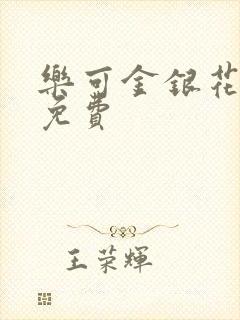 樂可金銀花
免費
王荣輝